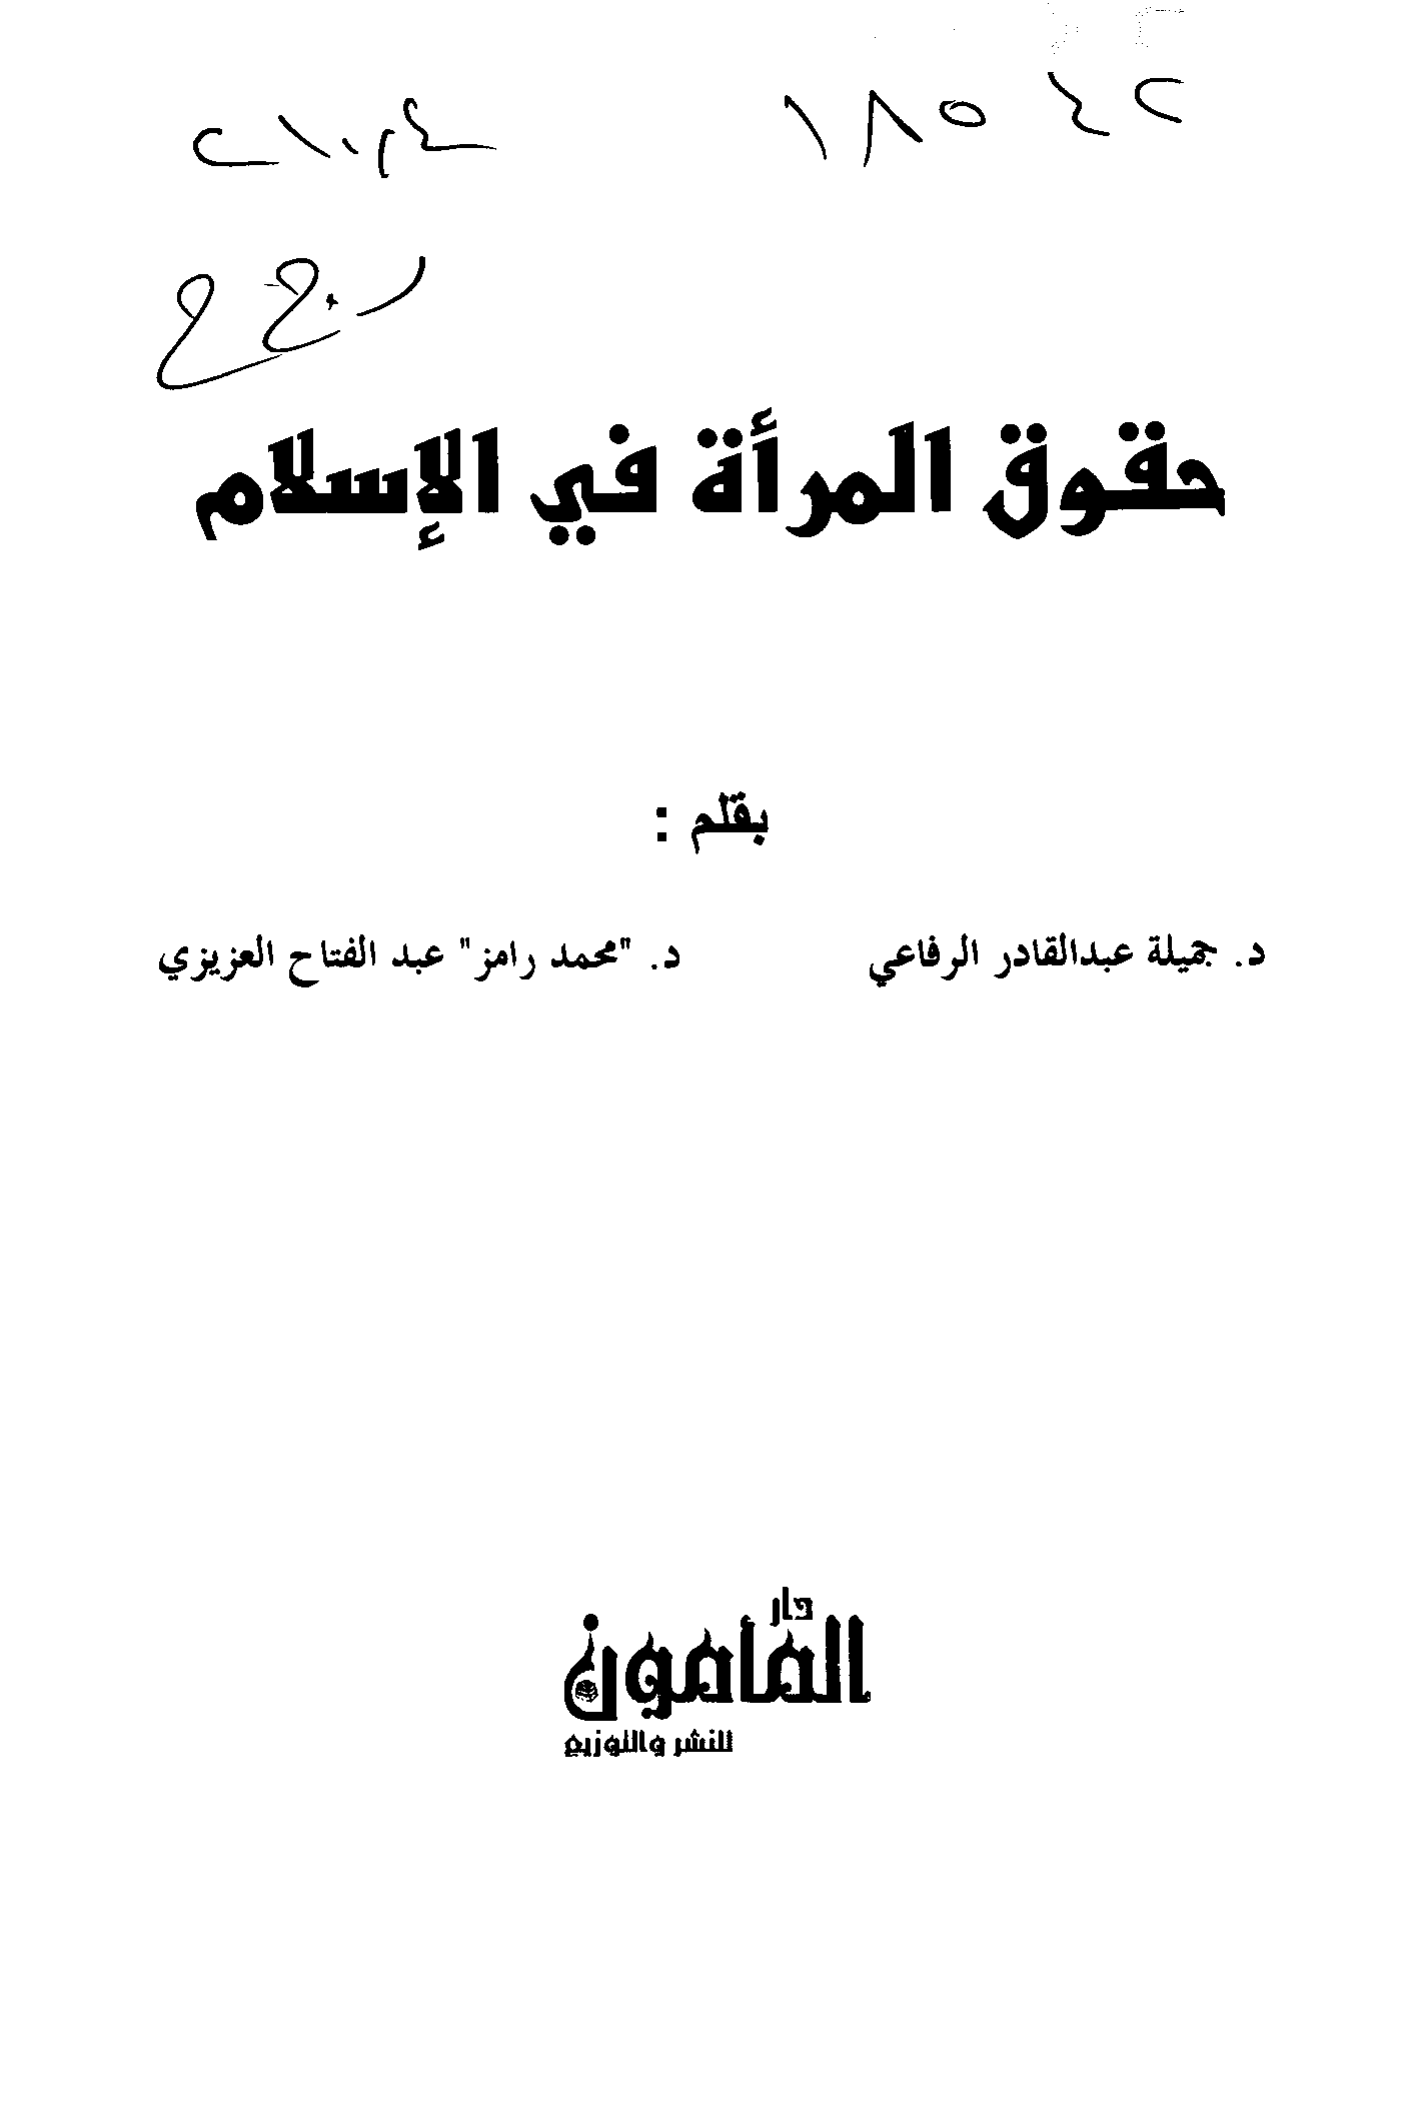 ١٨٥٤٢
حقوق المرأة في الإسلام
بقلم :
د. جميلة عبدالقادر الرفاعي
د. "محمد رامز" عبد الفتاح العزيزي
دار
المأمون
للنشر والتوزيع